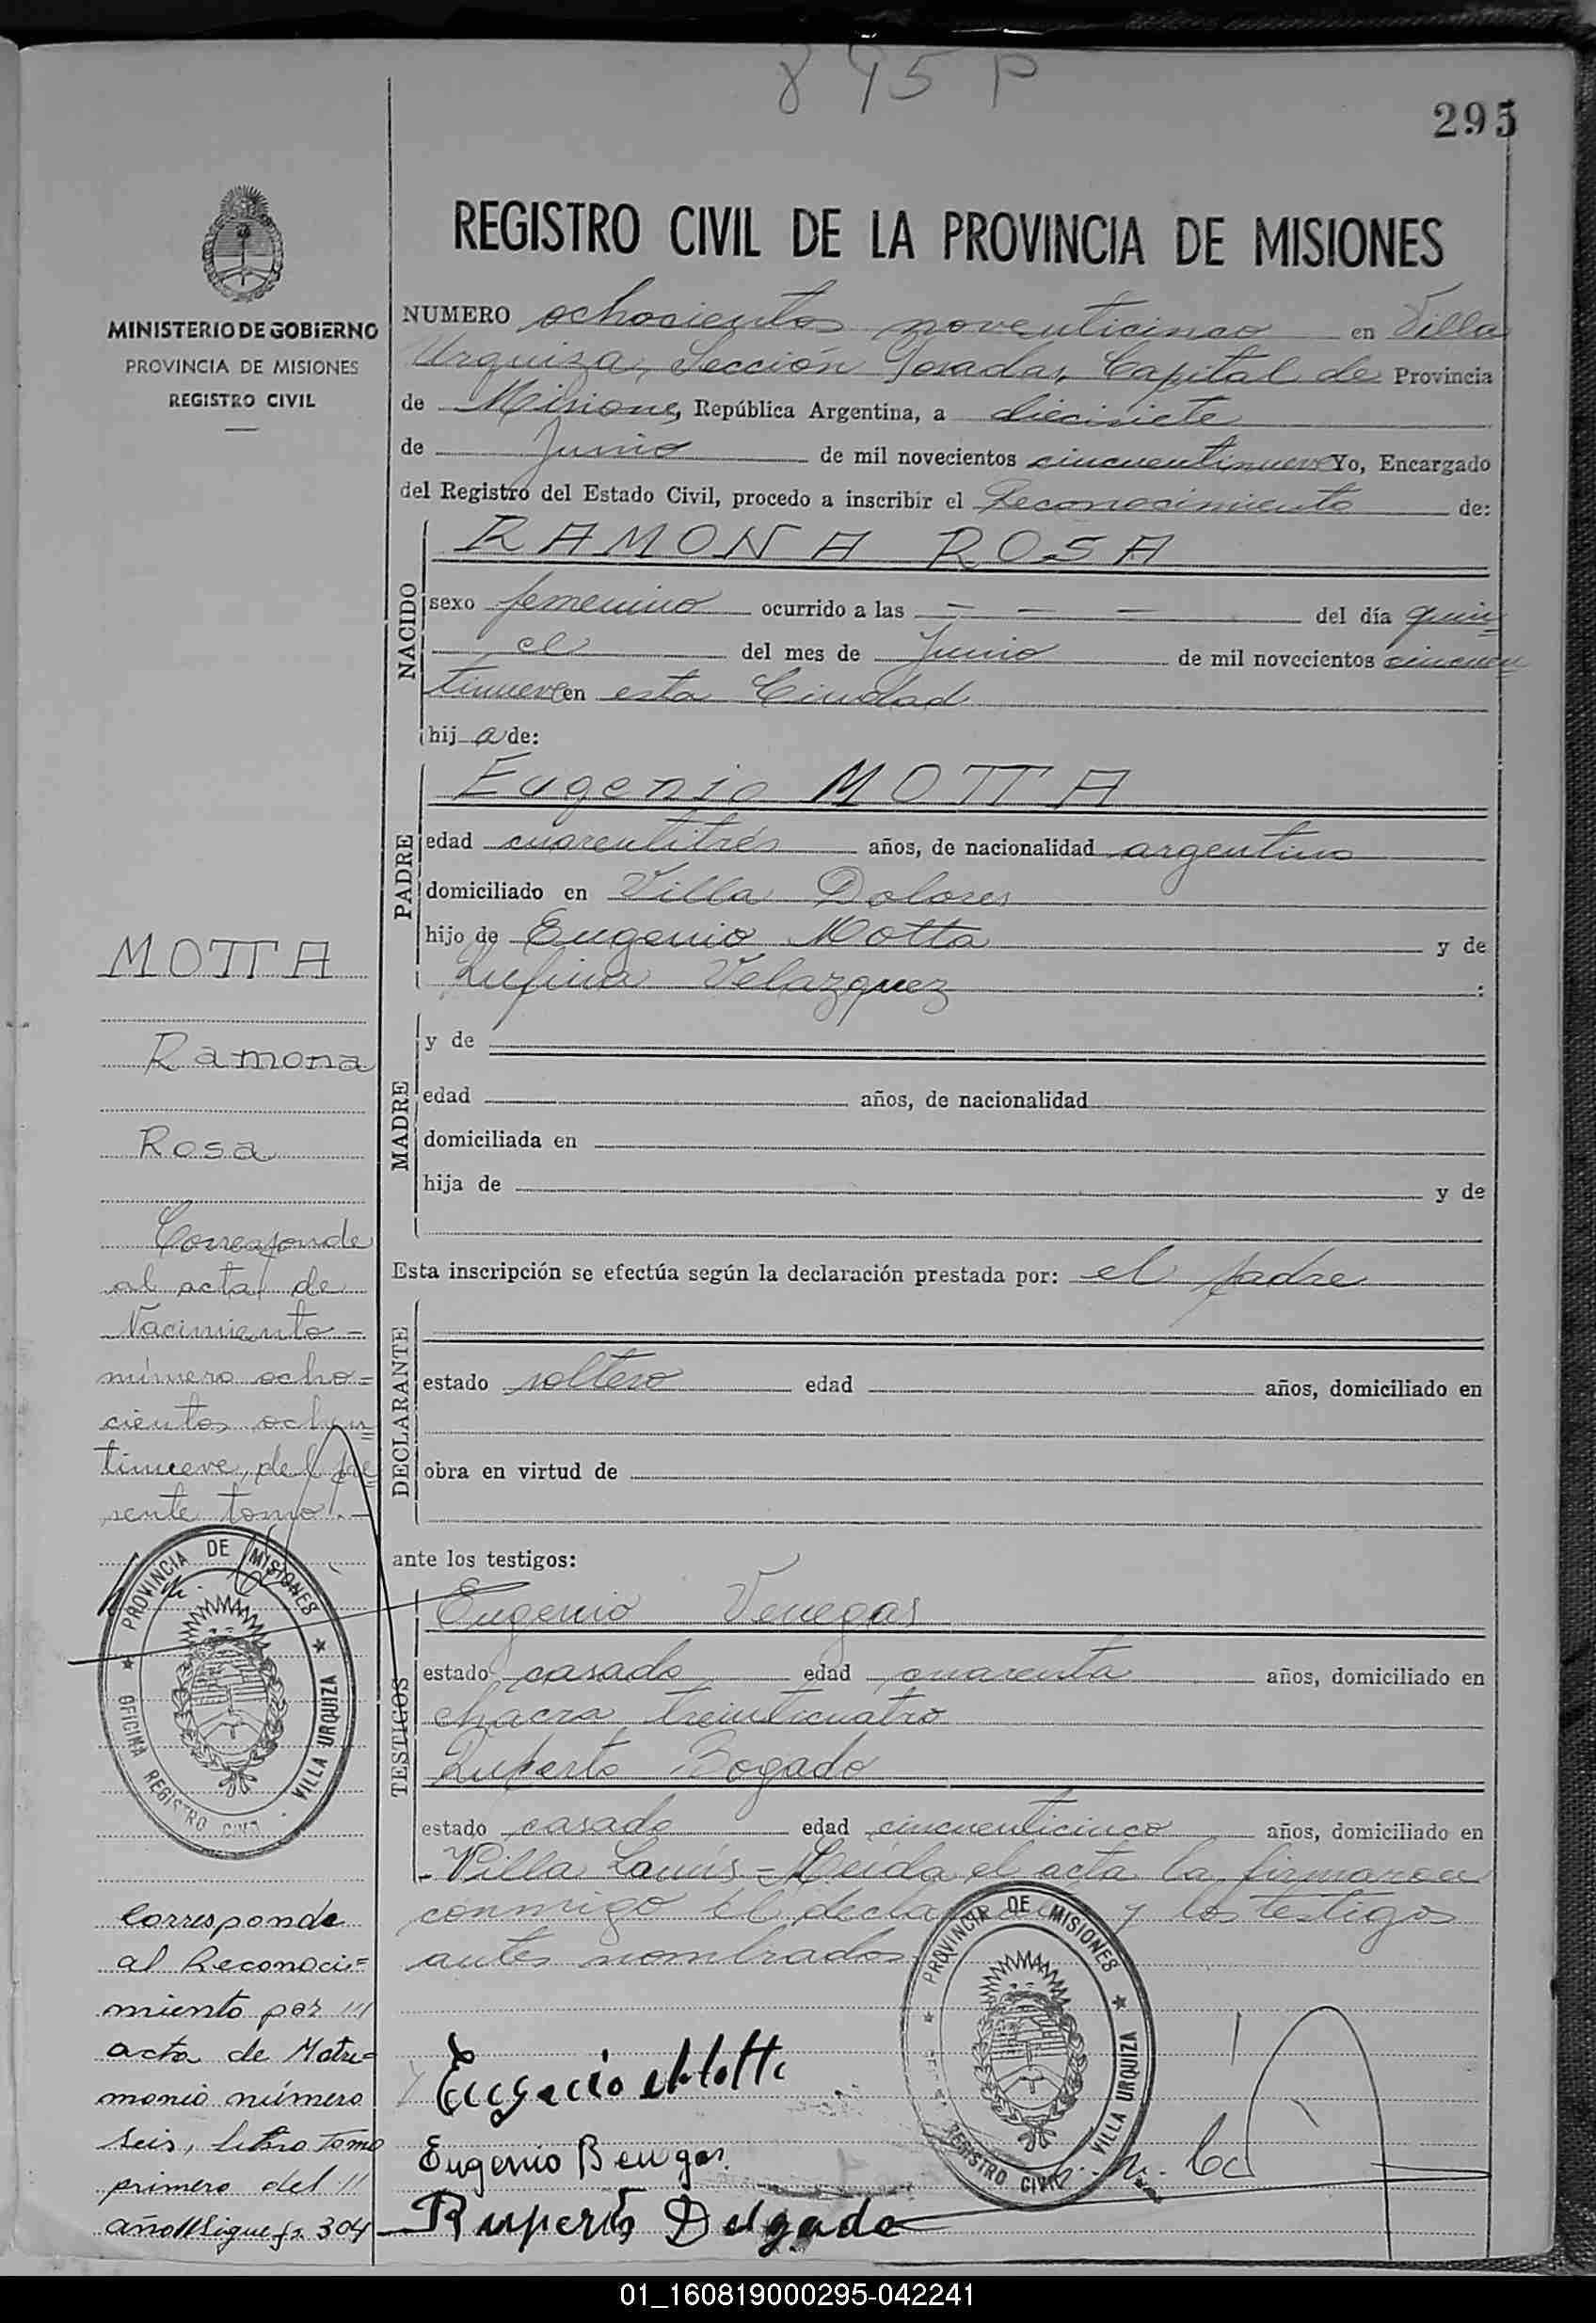 895 P
295
MINISTERIO DE GOBIERNO
PROVINCIA DE MISIONES
REGISTRO CIVIL
REGISTRO CIVIL DE LA PROVINCIA DE MISIONES
NUMERO ochocientos noventicinco en Villa
Urquiza, Sección Posadas, Capital de Provincia
de Misiones, República Argentina, a diecisiete
de Junio de mil novecientos cincuentinueve Yo, Encargado
del Registro del Estado Civil, procedo a inscribir el Reconocimiento de:
NACIDO
RAMONA ROSA
sexo femenino ocurrido a las — — — del día quin=
ce del mes de Junio de mil novecientos cincuen
tinueve en esta Ciudad
hij a de:
PADRE
Eugenio MOTTA
edad cuarentitrés años, de nacionalidad argentino
domiciliado en Villa Dolores
hijo de Eugenio Motta y de
Rufina Velazquez :
MADRE
y de
edad años, de nacionalidad
domiciliada en
hija de y de
Esta inscripción se efectúa según la declaración prestada por: el padre
DECLARANTE
estado soltero edad años, domiciliado en
obra en virtud de
ante los testigos:
TESTIGOS
Eugenio Venegas
estado casado edad cuarenta años, domiciliado en
chacra treinticuatro
Ruperto Bogado
estado casado edad cincuenticinco años, domiciliado en
Villa Lanús - Leída el acta la firmaron
conmigo el declarante y los testigos
antes nombrados
Eugenio Motta
Eugenio Benegas
Ruperto Delgado
PROVINCIA DE MISIONES
OFICINA REGISTRO CIVIL
VILLA URQUIZA
MOTTA
Ramona
Rosa
Corresponde
al acta de
Nacimiento -
número ocho=
cientos ochen=
tinueve, del pre=
sente tomo. -
PROVINCIA DE MISIONES
OFICINA REGISTRO CIVIL
VILLA URQUIZA
Corresponde
al Reconoci=
miento por
acta de Matri=
monio número
seis, libro Tomo
primero del
año sigue fs. 304
01_160819000295-042241